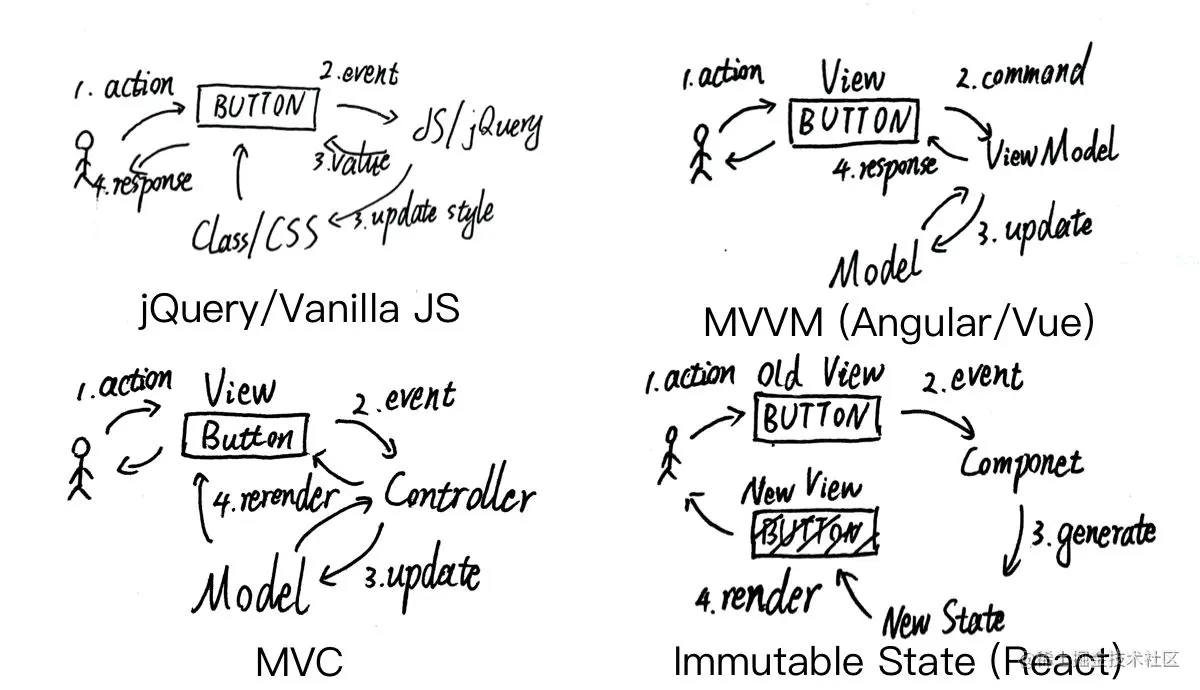 1. action
2. event
BUTTON
JS/jQuery
3. value
4. response
3. update style
Class/CSS
jQuery/Vanilla JS
1. action
View
2. command
BUTTON
ViewModel
4. response
3. update
Model
MVVM (Angular/Vue)
1. action
View
2. event
Button
4. rerender
Controller
3. update
Model
MVC
1. action
Old View
2. event
BUTTON
Componet
New View
BUTTON
3. generate
4. render
New State
Immutable State (React)
@稀土掘金技术社区